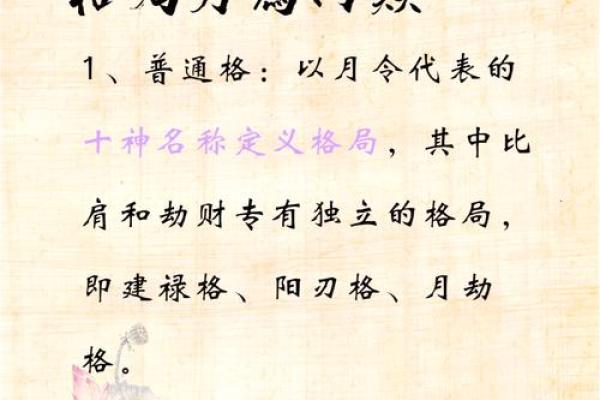 1、普通格：以月令代表的
十神名称定义格局，其中比
肩和劫财专有独立的格局，
即建禄格、阳刃格、月劫
格。